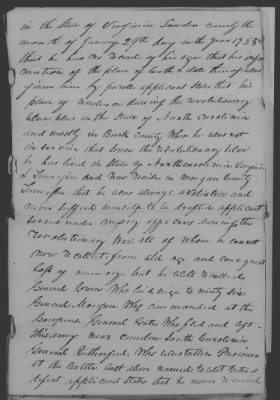 in the State of Virginia Loudon county the
month of January 29th day in the year 1758
that he has no record of his age that his infor
mation of the place of birth & date thereof was
given him by parole applicant states that his
place of residence during the revolutionary
was in the State of North Carolina
and mostly in Burk County When he was not
in service that since the revolutionary war
he has lived in State of North carolina Virginia
& Tennessee and now resides in Morgan County
Tennessee that he was always a volunteer and
never suffered himself to be drafted applicant
served under many officers during the
revolutionary War all of whom he cannot
now recollect from old age and consequent
loss of memory but he well recollects
General Green Who laid siege to ninety six
General Morgan Who commanded at the
Cowpens General Gates Who fled and left
his army near camden South Carolina
General Rutherford, Who was taken Prisoner
at the Battle last above named to wit Gates's
defeat applicant states that he never received